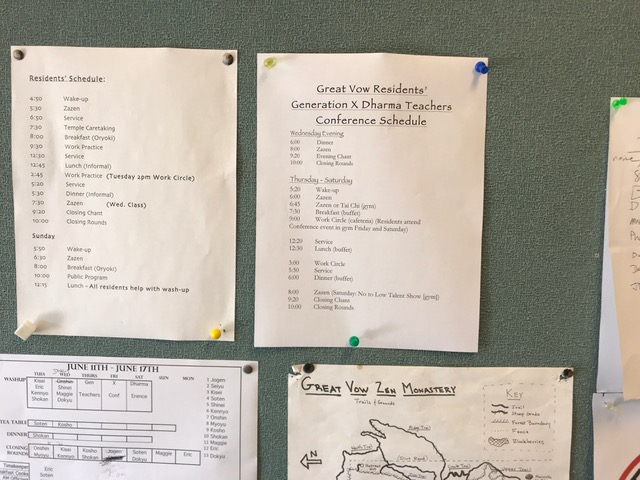 Residents' Schedule:
4:50 Wake-up
5:30 Zazen
6:50 Service
7:30 Temple Caretaking
8:00 Breakfast (Oryoki)
9:30 Work Practice
12:30 Service
12:45 Lunch (Informal)
2:45 Work Practice (Tuesday 2pm Work Circle)
5:20 Service
5:30 Dinner (Informal)
7:30 Zazen (Wed. Class)
9:20 Closing Chant
10:00 Closing Rounds
Sunday
5:50 Wake-up
6:30 Zazen
8:00 Breakfast (Oryoki)
10:00 Public Program
12:15 Lunch - All residents help with wash-up
Great Vow Residents'
Generation X Dharma Teachers
Conference Schedule
Wednesday Evening
6:00 Dinner
8:00 Zazen
9:20 Evening Chant
10:00 Closing Rounds
Thursday - Saturday
5:20 Wake-up
6:00 Zazen
6:45 Zazen or Tai Chi (gym)
7:30 Breakfast (buffet)
9:00 Work Circle (cafeteria) (Residents attend
Conference event in gym Friday and Saturday)
12:20 Service
12:30 Lunch (buffet)
3:00 Work Circle
5:50 Service
6:00 Dinner (buffet)
8:00 Zazen (Saturday: No to Low Talent Show [gym])
9:20 Closing Chant
10:00 Closing Rounds
JUNE 11TH - JUNE 17TH
TUES WED THU FRI SAT SUN MON
WASHUP Kisei Onshin Gen X Dharma
Eric Shinei Teachers Conf Erence
Kennyo Maggie
Shokan Dokyu
1 Jogen
2 Seiyu
3 Kisei
4 Soten
5 Shinei
6 Kennyo
7 Onshin
8 Myoyu
9 Kosho
10 Shokan
11 Maggie
12 Eric
13 Dokyu
TEA TABLE Soten Kosho
DINNER Shokan
CLOSING ROUNDS Onshin Kisei Kosho Jogen Soten Maggie Eric
Myoyu Kennyo Shokan Dokyu
Timekeeper Eric
Soten
GREAT VOW ZEN MONASTERY
Trails & Grounds
KEY
Trail
Steep Grade
Forest Boundary
Fence
Blackberries
N